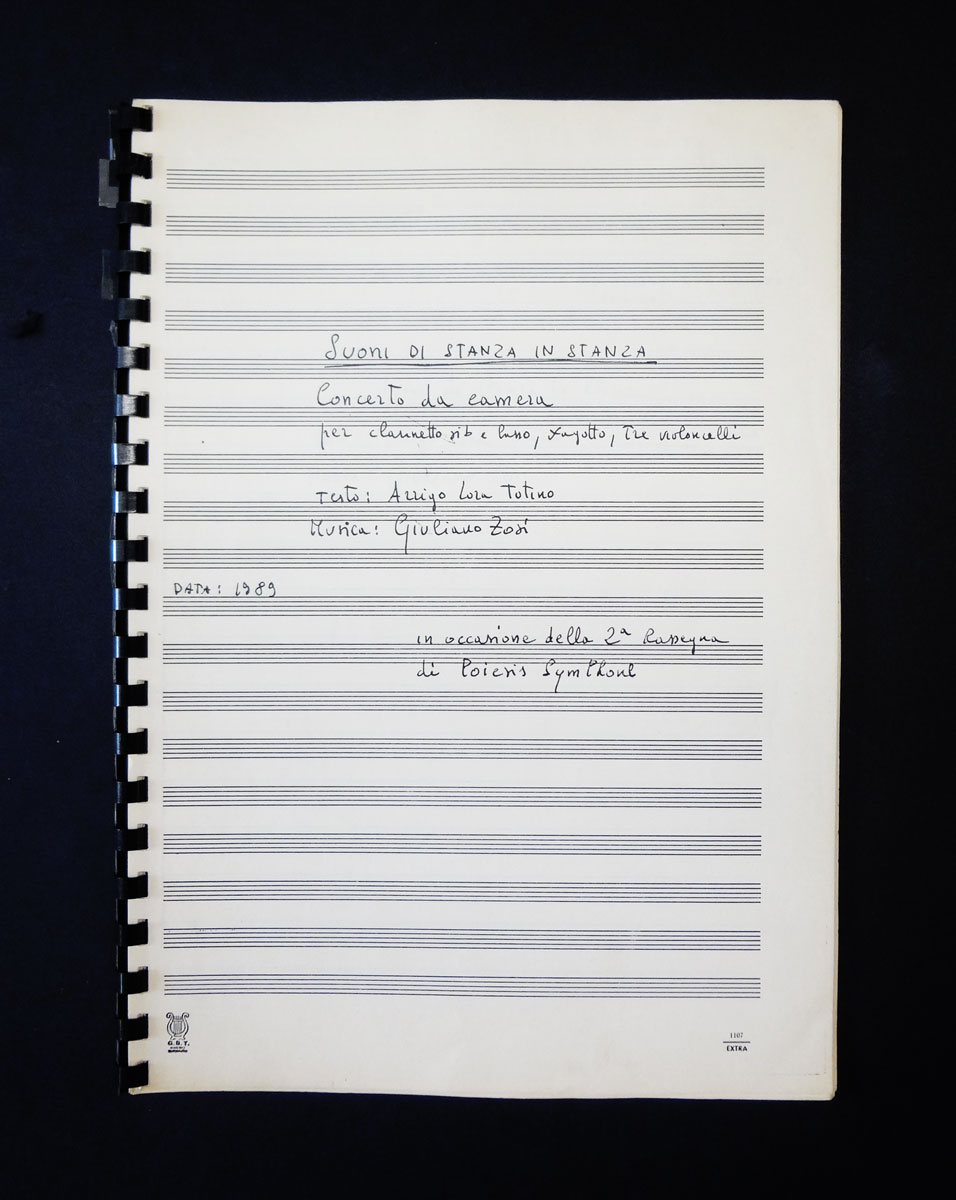 Suoni DI STANZA IN STANZA
Concerto da camera
per clarinetto sib e basso, fagotto, Tre violoncelli
Testo: Arrigo Lora Totino
Musica: Giuliano Zosi
DATA: 1989
in occasione della 2ª Rassegna
di Poiesis Symphoné
G. B. T.
1107
EXTRA